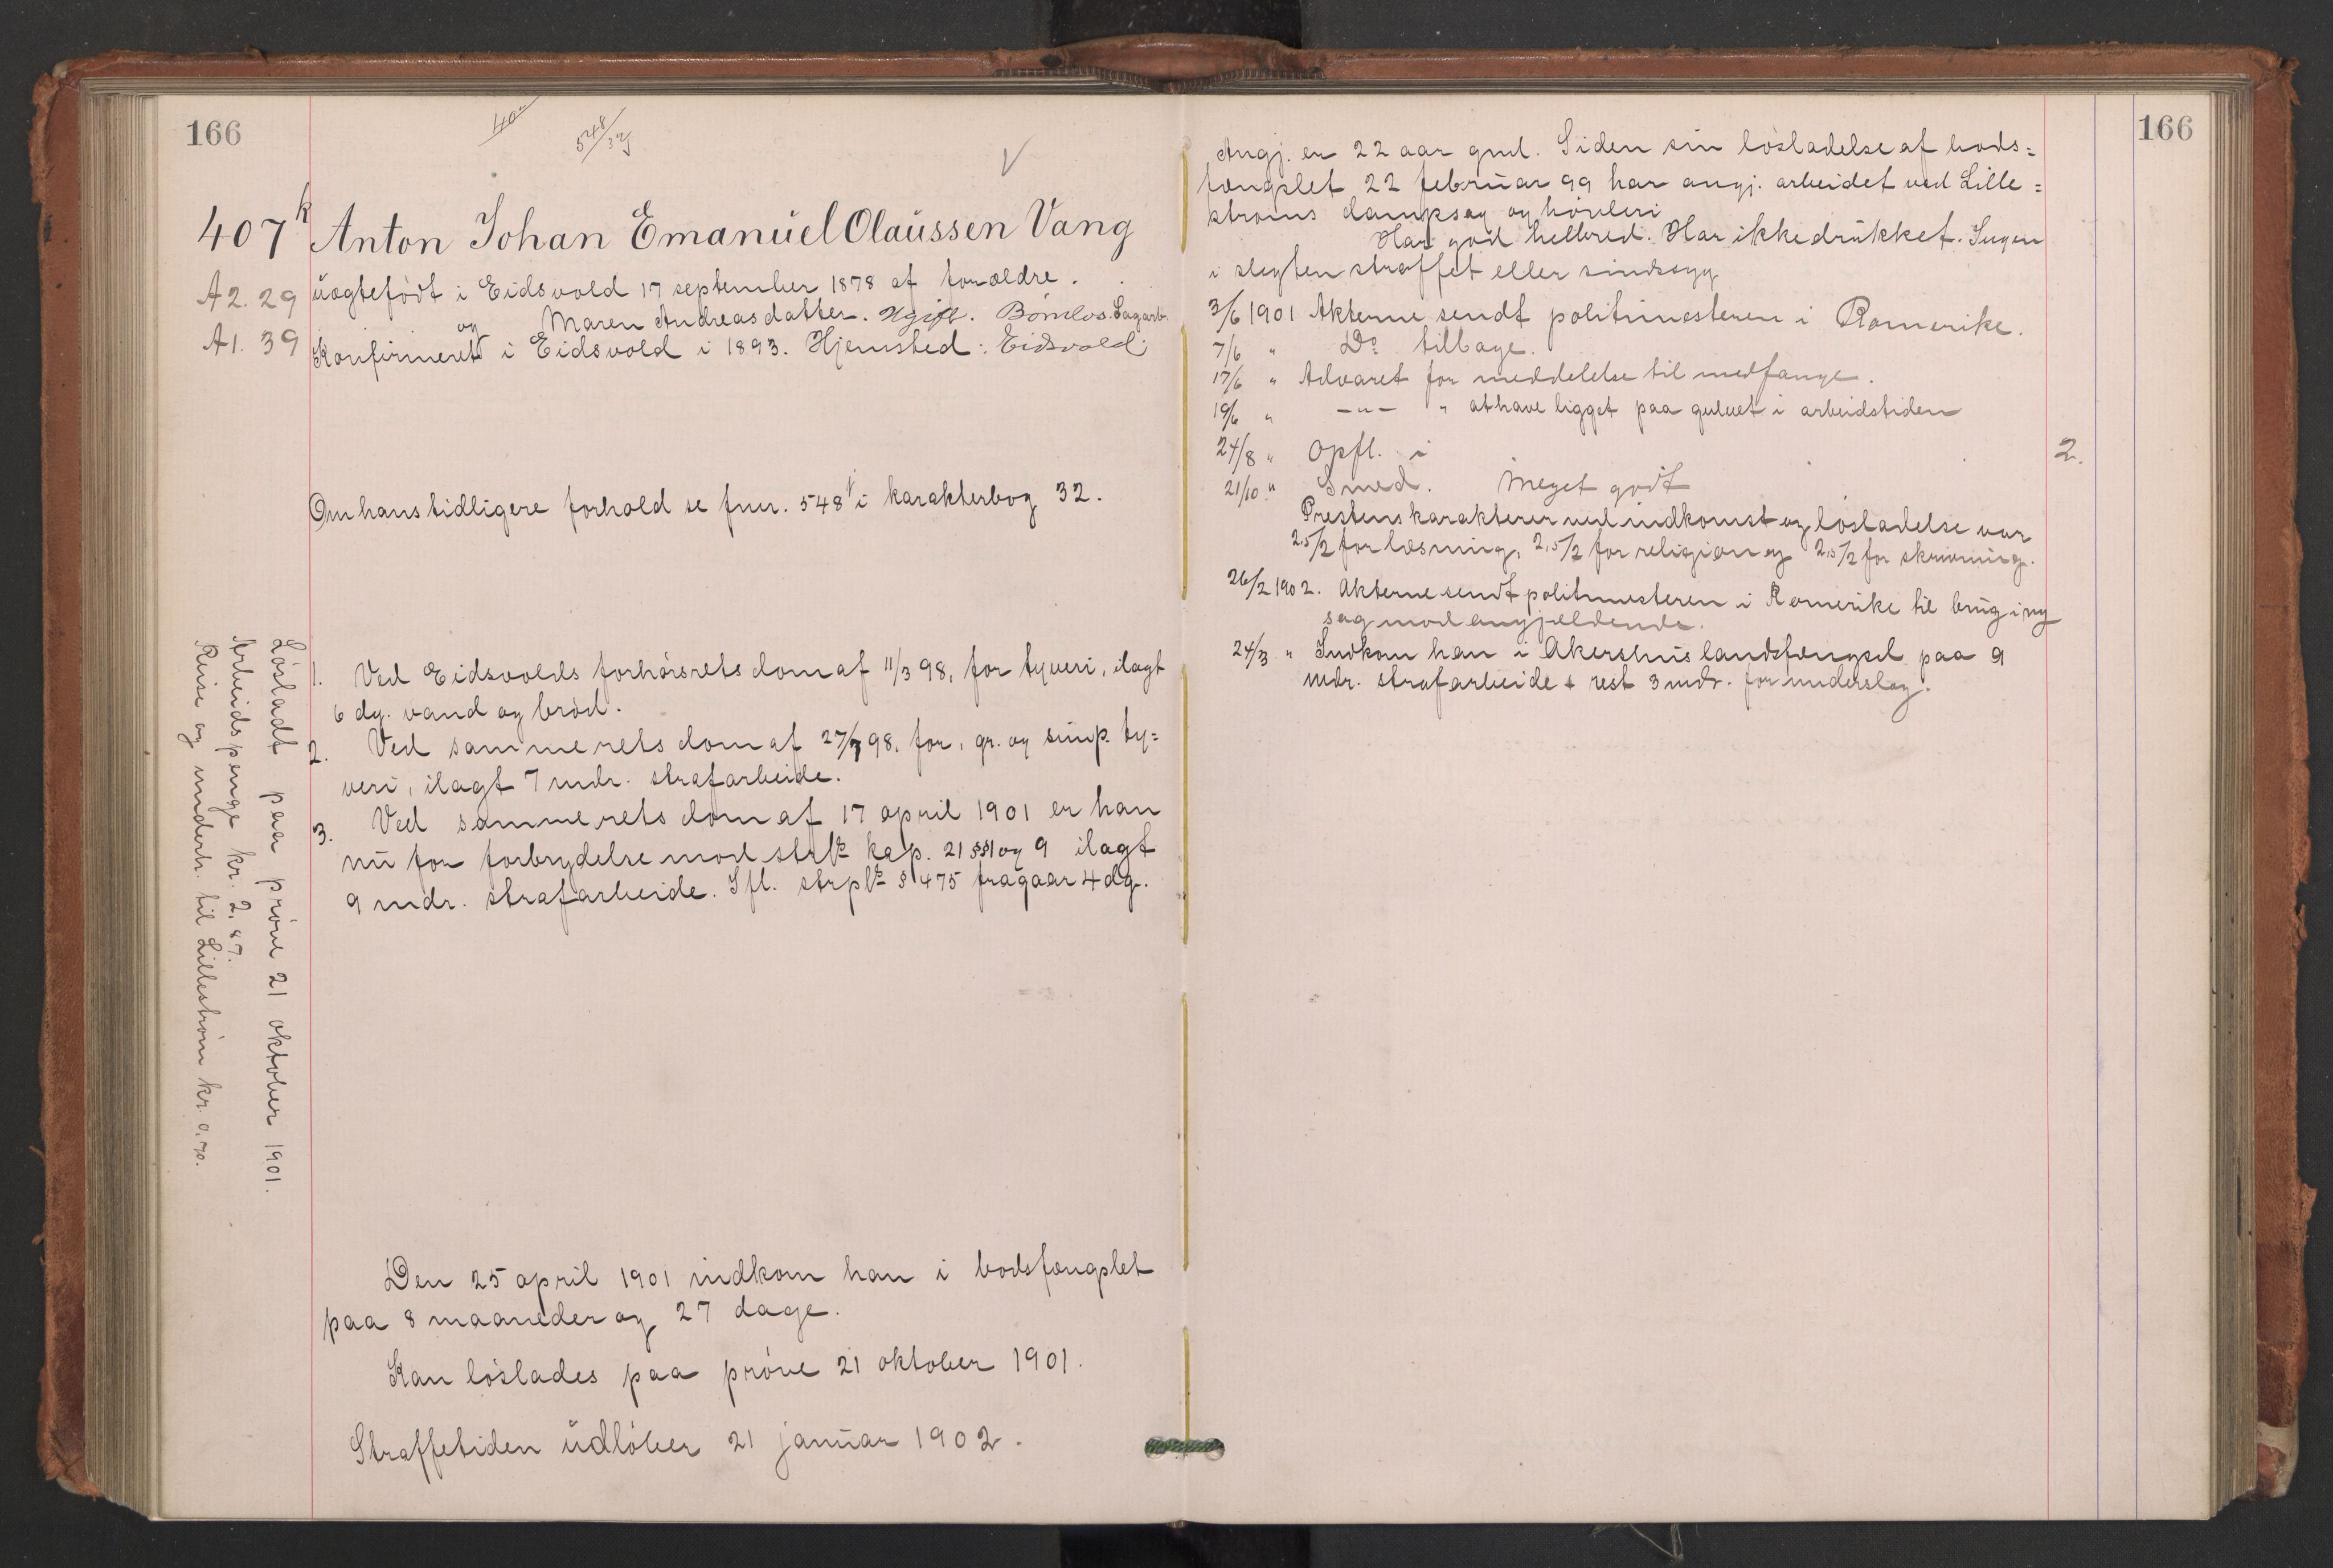 166
548/32
407 k Anton Johan Emanuel Olaussen Vang
A2. 29 uægtefödt i Eidsvold 17 september 1878 af forældre.
og Maren Andreasdatter. Ugift. Barnløs. Sagarb.
A1. 39 Konfirmeret i Eidsvold i 1893. Hjemsted: Eidsvold.
Om hans tidligere forhold se fnr. 548 i karakterbog 32.
1. Ved Eidsvolds forhörsrets dom af 11/3 98, for tyveri, ilagt
6 dg. vand og bröd.
2. Ved samme rets dom af 27/7 98, for, gr. og simp. ty=
veri, ilagt 7 mdr. strafarbeide.
3. Ved samme rets dom af 17 april 1901 er han
nu for forbrydelse mod strl kap. 21 §§1 og 9 ilagt
9 mdr. strafarbeide. Ifl. strpl § 475 fragaar 4 dg.
Den 25 april 1901 indkom han i bodsfængslet
paa 8 maaneder og 27 dage.
Kan löslades paa pröve 21 oktober 1901.
Straffetiden udlöber 21 januar 1902.
Lösladt paa pröve 21 oktober 1901.
Arbeidspenge kr. 2,87.
Reise og underh. til Lilleström kr. 0,70.
166
Angj. er 22 aar gml. Siden sin lösladelse af bods=
fængslet 22 februar 99 har angj. arbeidet ved Lille=
ströms dampsag og hövleri
Har god helbred. Har ikke drukket. Ingen
i slegten straffet eller sindssyg
3/6 1901 Akterne sendt politimesteren i Romerike.
7/6 " Do tilbage.
17/6 " Advaret for meddelelse til medfange.
19/6 " -"- " at have ligget paa gulvet i arbeidstiden
24/8 " Opfl. i 2.
21/10 " Smed. Meget godt
Prestens karakterer ved indkomst og lösladelse var
2,5/2 for læsning, 2,5/2 for religion og 2,5/2 for skrivning.
26/2 1902. Akterne sendt politimesteren i Romerike til brug i ny
sag mod angjældende.
24/3 " Indkom han i Akershus landsfængsel paa 9
mdr. strafarbeide + rest 3 mdr. for underslag.